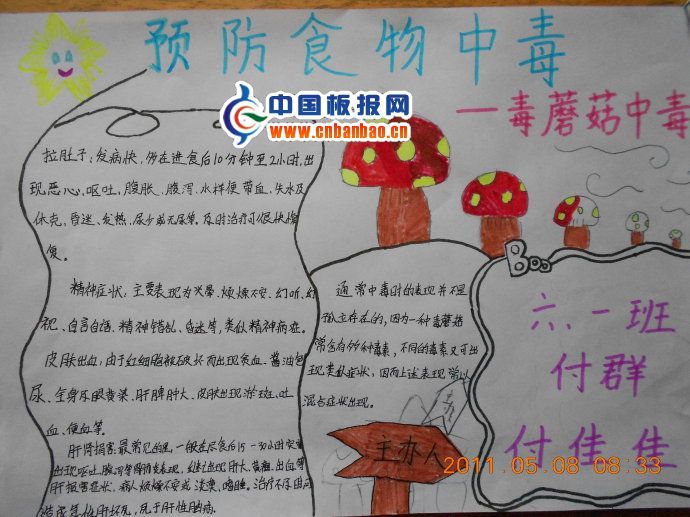 预防食物中毒
中国板报网
www.cnbanbao.cn
一毒蘑菇中毒
拉肚子：发病快，多在进食后10分钟至2小时，出
现恶心，呕吐，腹胀、腹泻、水样便带血、失水及
休克，昏迷、发热、尿少或无尿等，及时治疗可很快恢
复。
精神症状：主要表现为兴奋、烦燥不安、幻听、幻
视、自言自语、精神错乱、昏迷等，类似精神病症。
皮肤出血：由于红细胞被破坏而出现贫血、酱油色
尿、全身及眼黄染、肝脾肿大、皮肤出现淤斑、吐
血、便血等。
肝肾损害：最常见的是，一般在食后15-30小时
出现呕吐、腹泻等肠胃表现，继之出现肝大、黄疸、出血等
肝损害症状，病人烦燥不安或淡漠、嗜睡。治疗不及时可
急性肝坏死，死于肝性脑病。
通常中毒时的表现并不是
独立存在的，因为一种毒蘑菇
常含有多种毒素，不同的毒素又可出
现类似症状，因而上述表现常以
混合症状出现。
六.一班
付群
付佳佳
主办人
2011.05.08 08:33